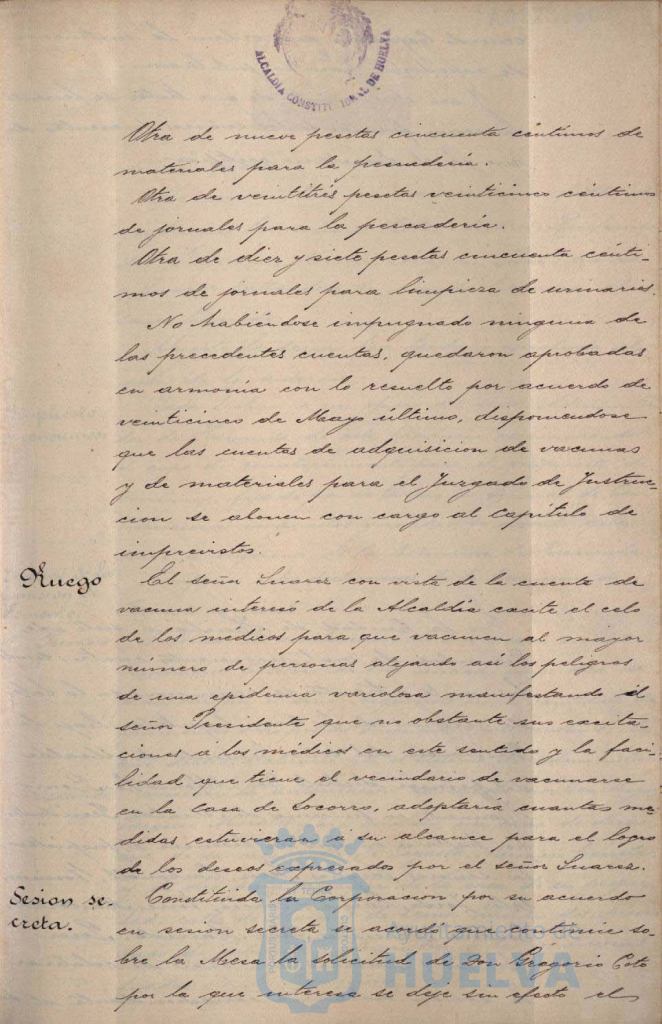 ALCALDÍA CONSTITUCIONAL DE HUELVA
Otra de nueve pesetas cincuenta céntimos de
materiales para la pescadería.
Otra de veintitrés pesetas veinticinco céntimos
de jornales para la pescadería.
Otra de diez y siete pesetas cincuenta cénti-
mos de jornales para limpieza de urinarios.
No habiéndose impugnado ninguna de
las precedentes cuentas, quedaron aprobadas
en armonía con lo resuelto por acuerdo de
veinticinco de Mayo último, disponiendose
que las cuentas de adquisicion de vacunas
y de materiales para el Juzgado de Instruc-
cion se abonen con cargo al Capítulo de
imprevistos.
Ruego
El señor Suarez con vista de la cuenta de
vacuna interesó de la Alcaldía excite el celo
de los médicos para que vacunen al mayor
número de personas alejando así los peligros
de una epidemia variolosa manifestando el
señor Presidente que no obstante sus excita-
ciones á los médicos en este sentido y la faci-
lidad que tiene el vecindario de vacunarse
en la Casa de Socorro, adoptaría cuantas me-
didas estuvieran á su alcance para el logro
de los deseos expresados por el señor Suarez.
Sesion se-
creta.
Constituida la Corporacion por su acuerdo
en sesion secreta se acordó que continúe so-
bre la Mesa la solicitud de Don Gregorio Coto
por la que interesa se deje sin efecto el
Ayuntamiento de
HUELVA